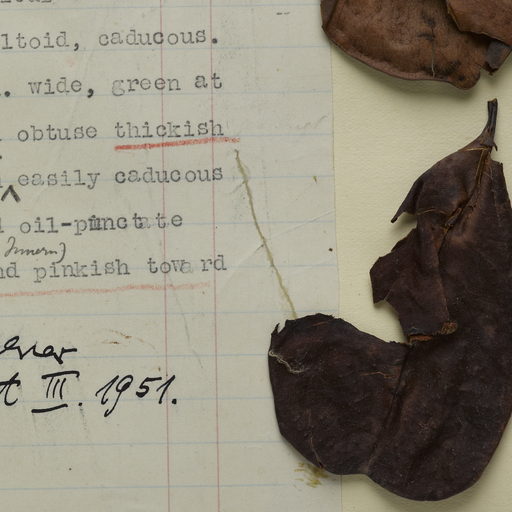 ltoid, caducous.
. wide, green at
obtuse thickish
easily caducous
oil-punctate
(Innern)
nd pinkish toward
III. 1951.